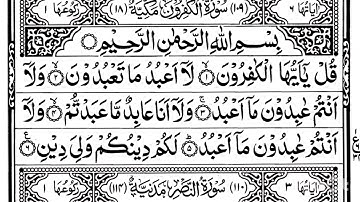 اٰیَاتُهَا ٦ (١٠٩) سُوْرَةُ الْكٰفِرُوْنَ مَكِّيَّةٌ (١٨) رُكُوْعُهَا ١
بِسْمِ اللّٰهِ الرَّحْمٰنِ الرَّحِيْمِ
قُلْ يٰۤاَيُّهَا الْكٰفِرُوْنَ ١ لَاۤ اَعْبُدُ مَا تَعْبُدُوْنَ ٢ وَلَاۤ
اَنْتُمْ عٰبِدُوْنَ مَاۤ اَعْبُدُ ٣ وَلَاۤ اَنَا عَابِدٌ مَّا عَبَدْتُّمْ ٤ وَلَاۤ
اَنْتُمْ عٰبِدُوْنَ مَاۤ اَعْبُدُ ٥ لَكُمْ دِيْنُكُمْ وَلِيَ دِيْنِ ٦
اٰیَاتُهَا ٣ (١١٠) سُوْرَةُ النَّصْرِ مَدَنِيَّةٌ (١١٤) رُكُوْعُهَا ١